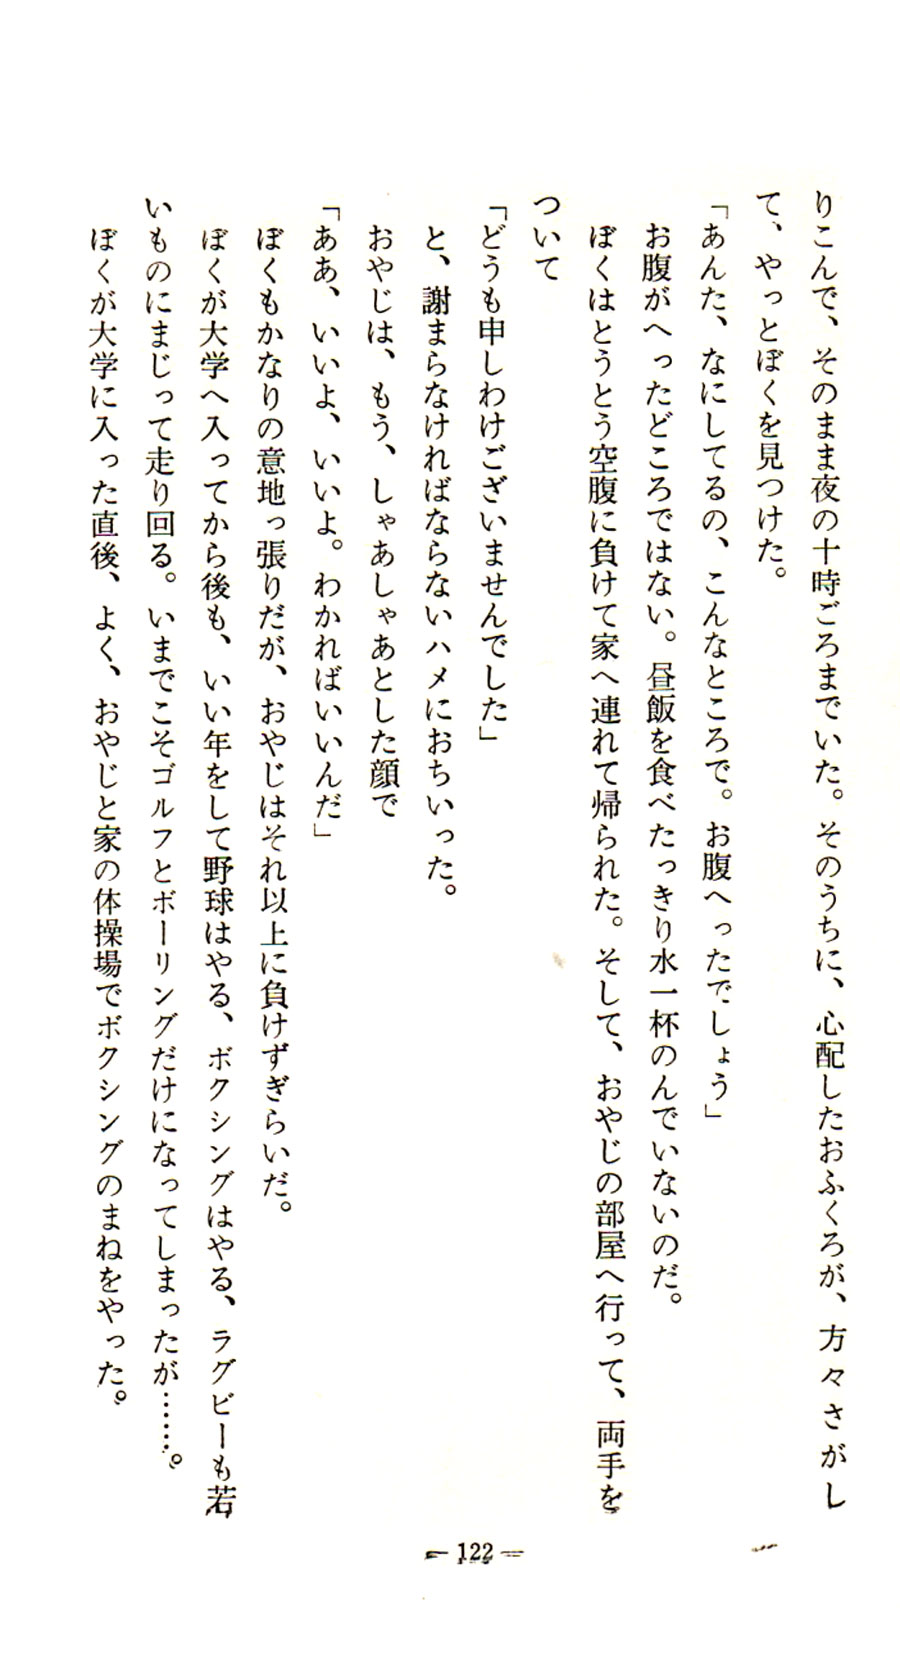 りこんで、そのまま夜の十時ごろまでいた。そのうちに、心配したおふくろが、方々さがし
て、やっとぼくを見つけた。
「あんた、なにしてるの、こんなところで。お腹へったでしょう」
お腹がへったどころではない。昼飯を食べたっきり水一杯のんでいないのだ。
ぼくはとうとう空腹に負けて家へ連れて帰られた。そして、おやじの部屋へ行って、両手を
ついて
「どうも申しわけございませんでした」
と、謝まらなければならないハメにおちいった。
おやじは、もう、しゃあしゃあとした顔で
「ああ、いいよ、いいよ。わかればいいんだ」
ぼくもかなりの意地っ張りだが、おやじはそれ以上に負けずぎらいだ。
ぼくが大学へ入ってから後も、いい年をして野球はやる、ボクシングはやる、ラグビーも若
いものにまじって走り回る。いまでこそゴルフとボーリングだけになってしまったが……。
ぼくが大学に入った直後、よく、おやじと家の体操場でボクシングのまねをやった。
— 122 —